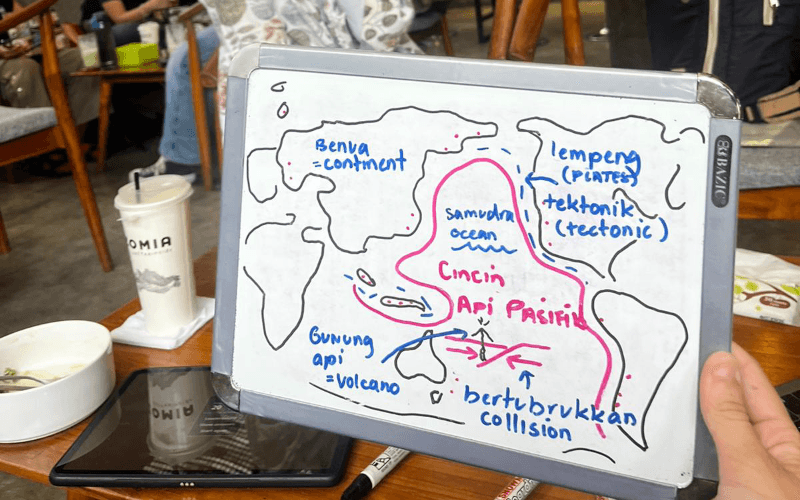 Benua
= continent
lempeng
(PLATES)
tektonik
(tectonic)
samudra
ocean
Cincin
Api Pasifik
Gunung
api
= volcano
bertubrukkan
collision
BAZIC
OMIA